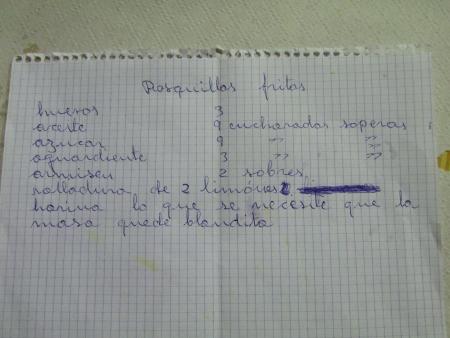 Rosquillas fritas
huevos 3
aceite 9 cucharadas soperas
azucar 9 " "
aguardiente 3 " "
armisen 2 sobres
ralladura de 2 limónes
harina lo que se necesite que la
masa quede blandita